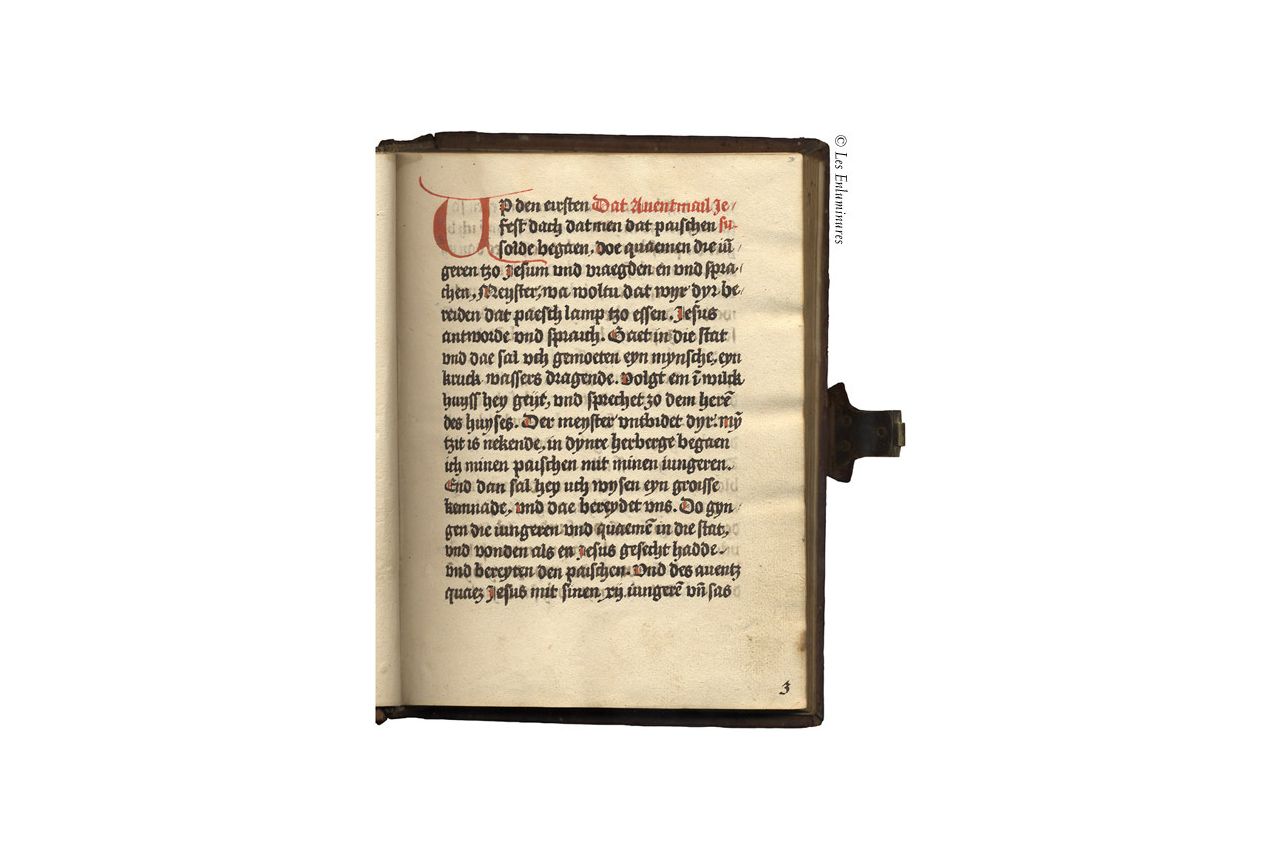 Up den eirsten Dat Auentmail Je/
fest dach datmen dat paischen su
solde begaen, doe quaemen die iū
geren tzo Jesum vnd vraegden en vnd spra/
chen, Meyster, wa woltu dat wyr dyr be
reiden dat paesch lamp tzo essen. Jesus
antworde vnd sprach. Gaet in die stat
vnd dae sal vch gemoeten eyn mynsche, eyn
kruck wassers dragende. volgt em ī wilck
huyss hey geijt, vnd sprechet zo dem herē
des huyses. Der meyster vntbidet dyr. mȳ
tzit is nekende, in dynre herberge begaen
ich minen paischen mit minen iungeren.
End dan sal hey uch wysen eyn groisse
kemnade, vnd dae bereydet vns. Do gyn/
gen die iungeren vnd quaemē in die stat,
vnd vonden als en Jesus gesecht hadde.
vnd bereyten den paischen. Vnd des auentz
quaez Jesus mit sinen xij iungerē vn̄ sas
3
© Les Enluminures